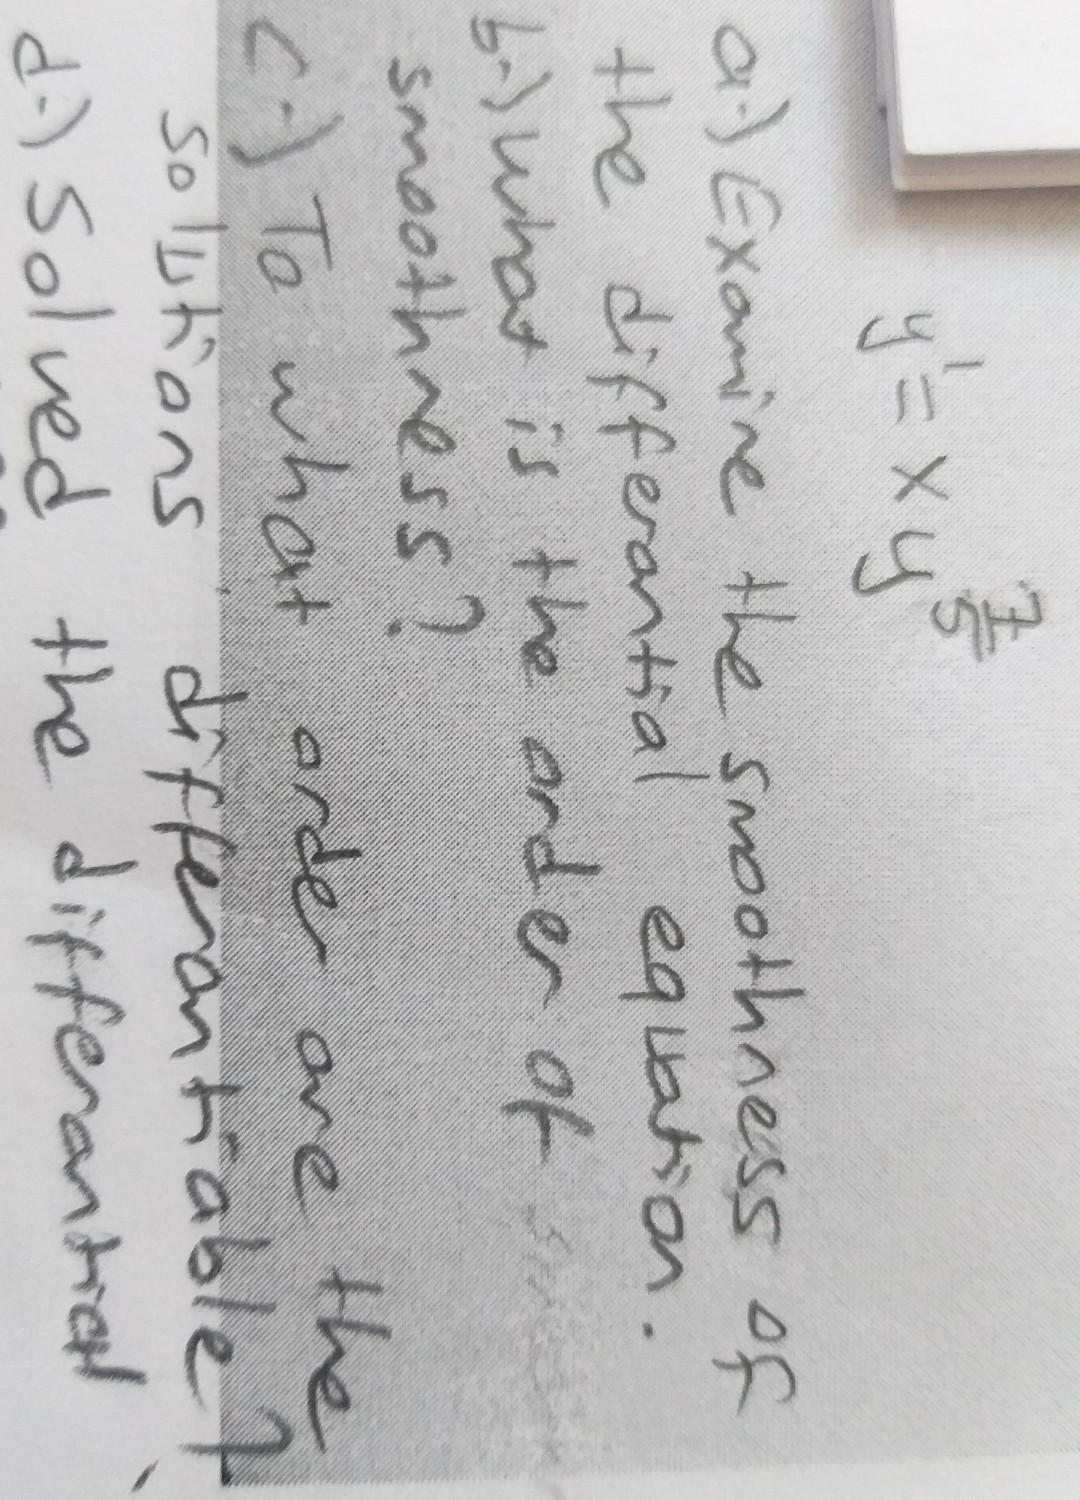 y' = xy^(7/5)
a.) Examine the smoothness of
the differantial equation.
b.) What is the order of
smoothness?
c.) To what order are the
solutions differantiable?
d.) Solved the differantial